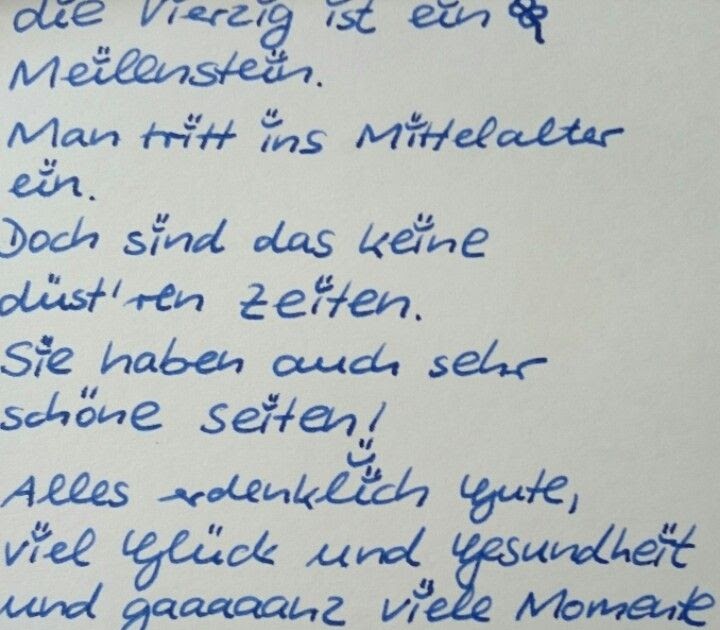 die Vierzig ist ein
Meilenstein.
Man tritt ins Mittelalter
ein.
Doch sind das keine
düst'ren Zeiten.
Sie haben auch sehr
schöne Seiten!
Alles erdenklich Gute,
viel Glück und Gesundheit
und gaaaaanz viele Momente